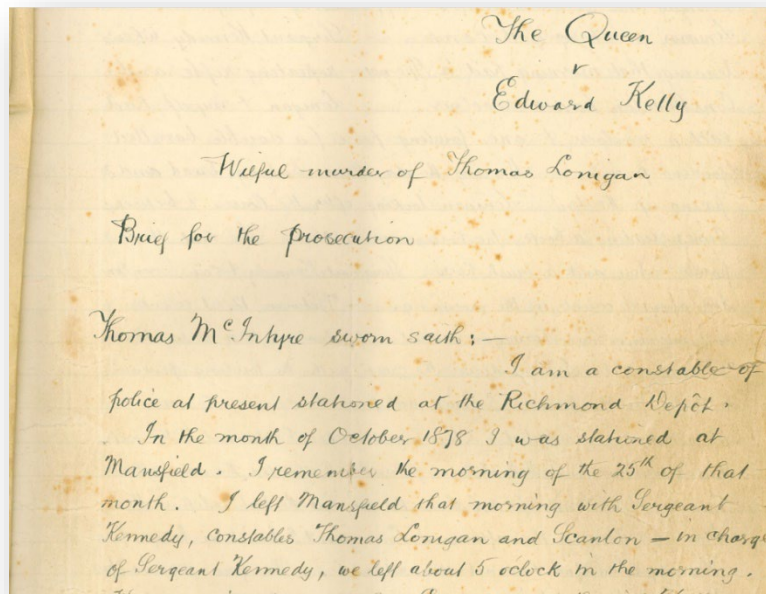 The Queen
v
Edward Kelly
Wilful murder of Thomas Lonigan
Brief for the prosecution
Thomas McIntyre sworn saith:—
I am a constable of
police at present stationed at the Richmond Depôt.
In the month of October 1878 I was stationed at
Mansfield. I remember the morning of the 25th of that
month. I left Mansfield that morning with Sergeant
Kennedy, constables Thomas Lonigan and Scanlon — in charge
of Sergeant Kennedy, we left about 5 oclock in the morning.